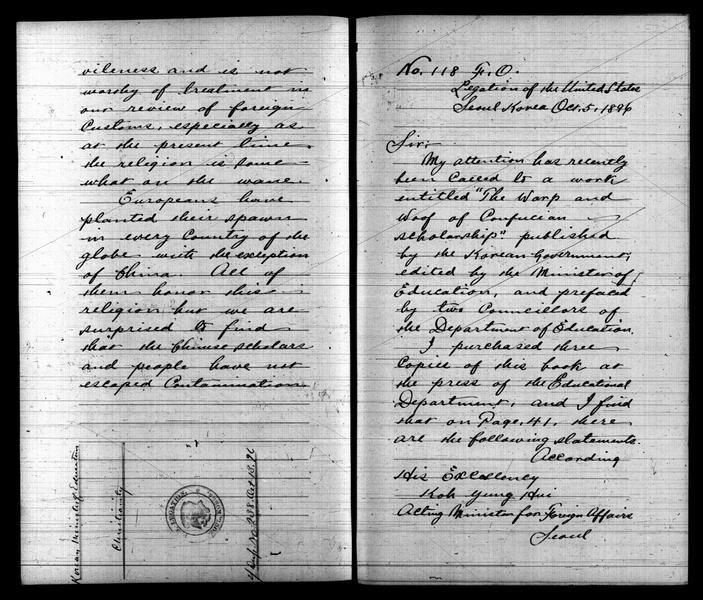 vileness and is not
worthy of treatment in
our review of foreign
Customs, especially as
at the present time
the religion is some-
what on the wane.
Europeans have
planted their spawn
in every Country of the
globe with the exception
of China. All of
them honor this
religion but we are
surprised to find
that the Chinese scholars
and people have not
escaped Contamination
Korean Minister of Education
Christianity
No. 118 F.O.
Legation of the United States
Seoul Korea Oct. 5, 1896
Sir:
My attention has recently
been called to a work
entitled "The Warp and
Woof of Confucian
scholarship" published
by the Korean Government,
edited by the Minister of
Education, and prefaced
by two Councillors of
the Department of Education.
I purchased three
Copies of this book at
the press of the Educational
Department, and I find
that on Page, 41, there
are the following statements.
According
His Excellency
Koh Yung Hui
Acting Minister for Foreign Affairs
Seoul